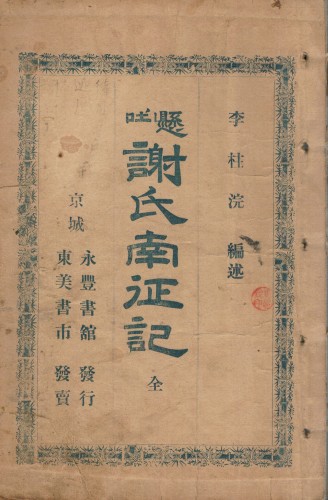 李柱浣 編述
懸吐
謝氏南征記 全
京城
永豐書舘 發行
東美書市 發賣